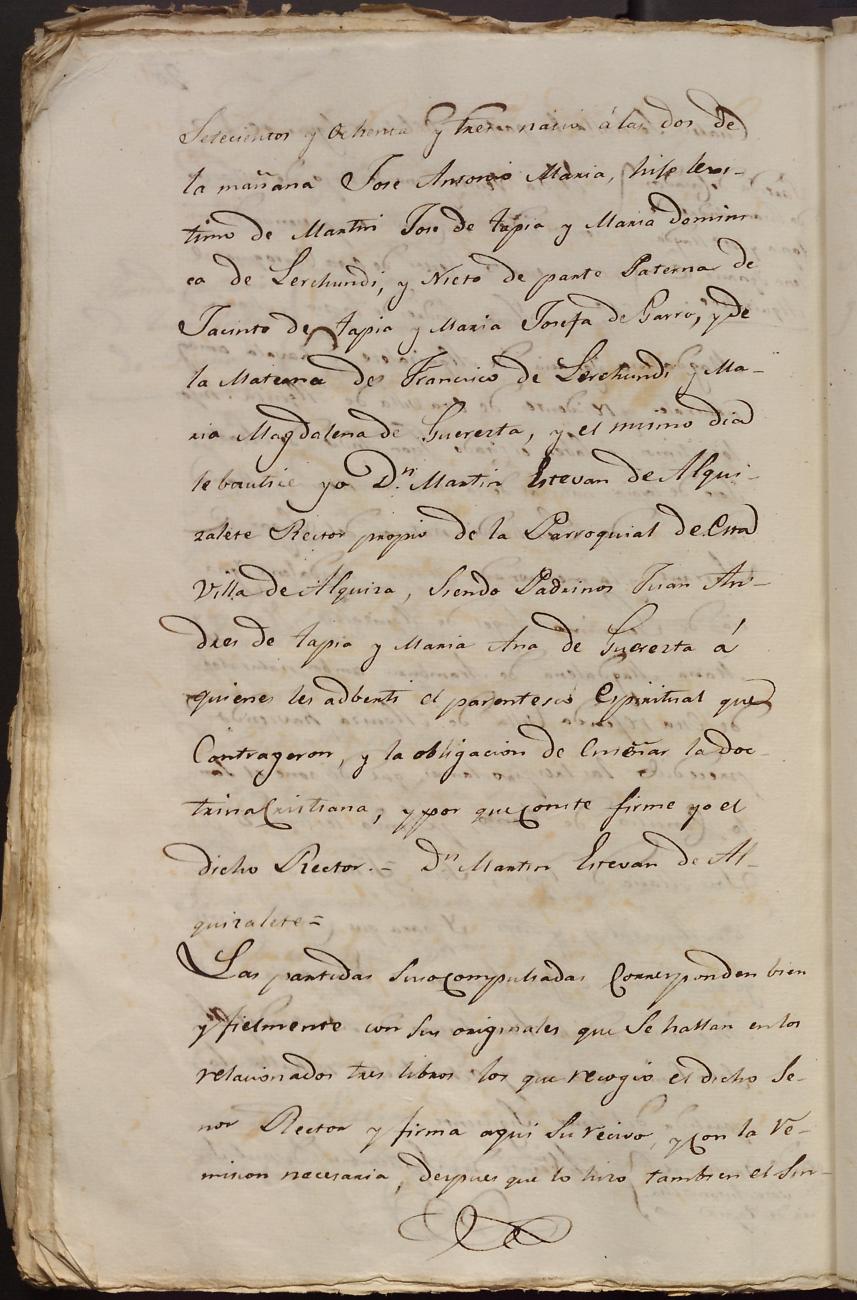 Setecientos y Ochenta y tres nacio á las dos de
la mañana Jose Antonio Maria, hijo lexi-
timo de Martin Jose de tapia y Maria domini
ca de Lerchundi, y Nieto de parte Paterna de
Jacinto de tapia y Maria Josefa de Garro, y de
la Materna de Francisco de Lerchundi y Ma-
ria Magdalena de Guerezta, y el mismo dia
le bautice yo D.n Martin Estevan de Alqui-
zalete Rector propio de la Parroquial de Esta
Villa de Alquiza, Siendo Padrinos Juan An-
dres de tapia y Maria Ana de Guerezta á
quienes les adberti el parentesco Espiritual que
Contrageron, y la obligacion de Enseñar la doc-
trina Cristiana, y por que Conste firme yo el
dicho Rector.= D.n Martin Estevan de Al-
quizalete=
Las partidas Susocompulsadas Corresponden bien
y fielmente con sus originales que Se hallan en los
relacionados tres libros los que recogio el dicho Se-
nor Rector y firma aqui Su recivo, y Con la re-
mision necesaria, despues que lo hizo tambien el Sin-